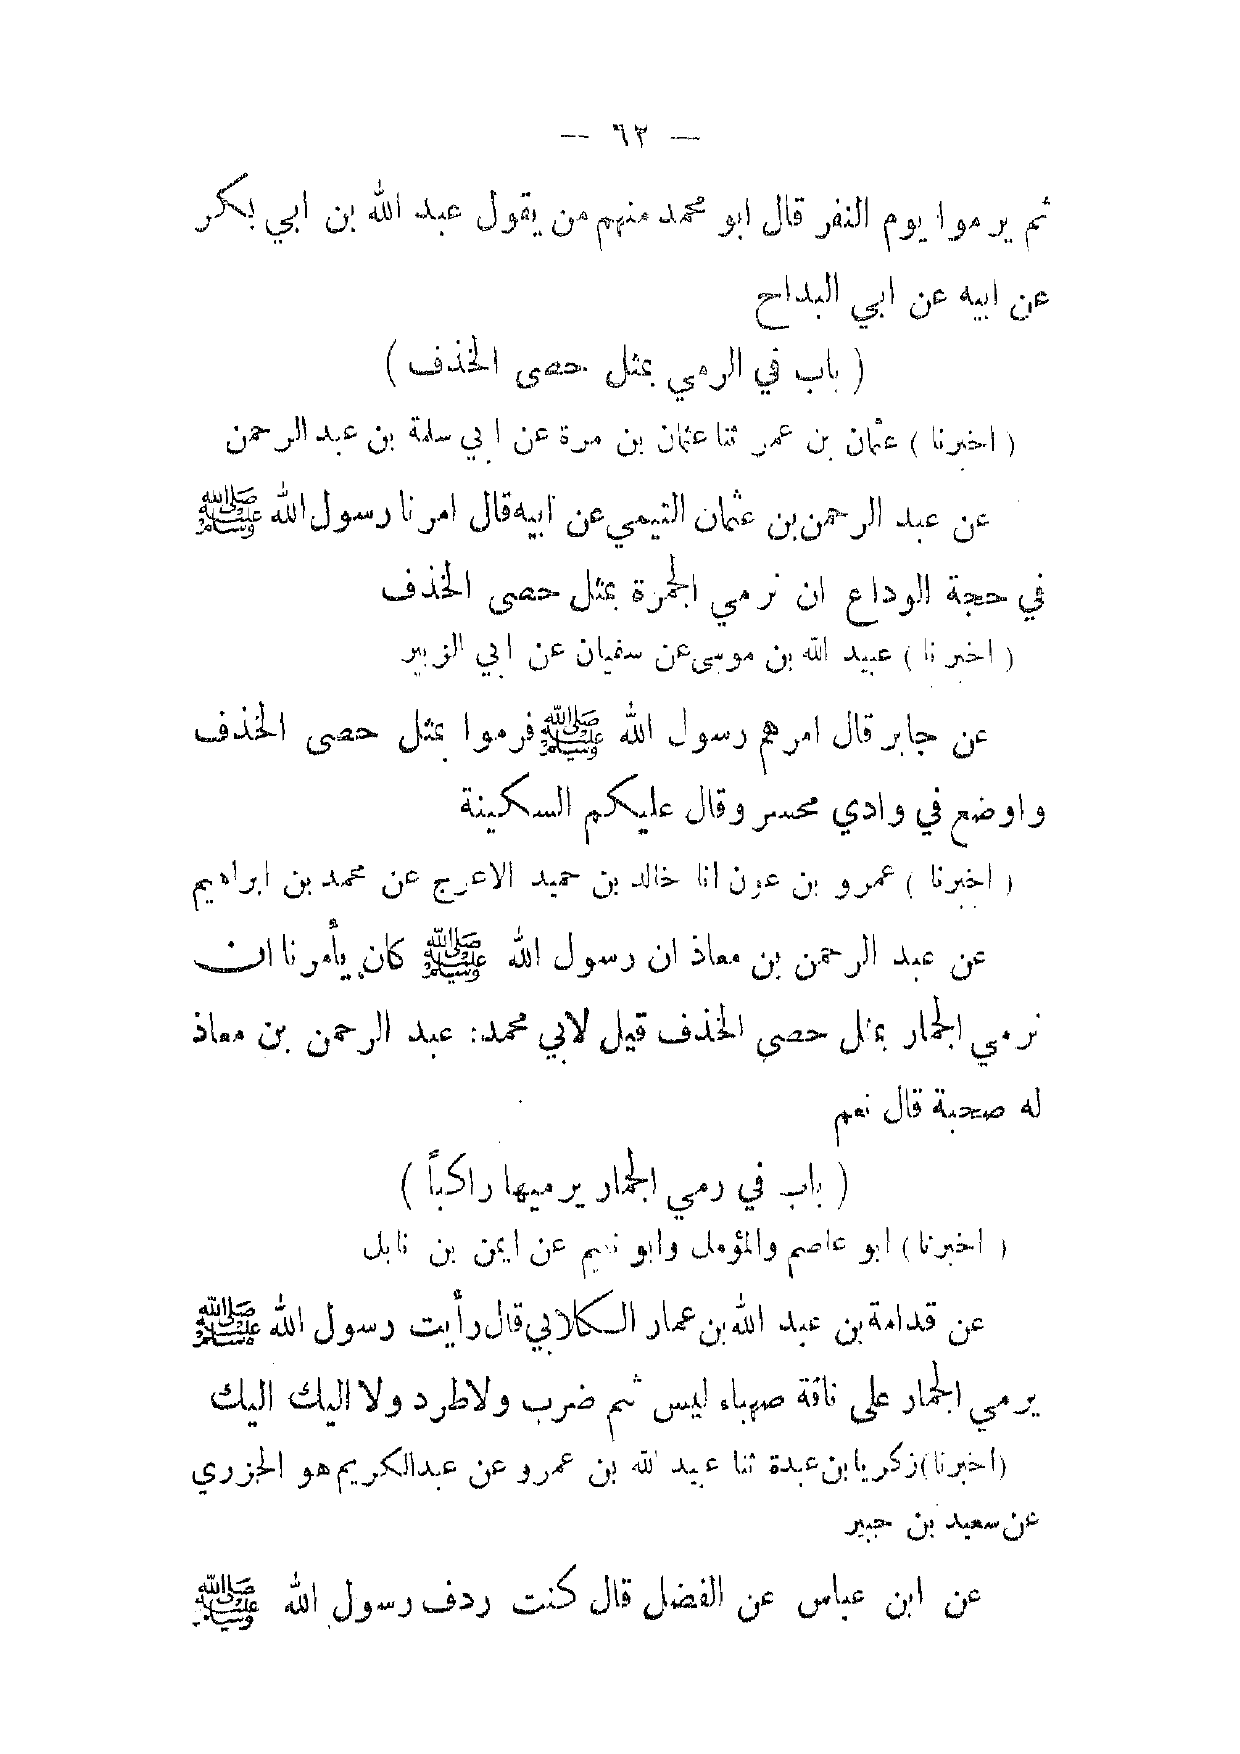 — ٦٢ —
ثم يرموا يوم النفر قال ابو محمد منهم من يقول عبد الله بن ابي بكر
عن ابيه عن ابي البداح
( باب في الرمي بمثل حصى الخذف )
( اخبرنا ) عثمان بن عمر ثنا عثمان بن مرة عن ابي سلمة بن عبد الرحمن
عن عبد الرحمن بن عثمان التيمي عن ابيه قال امرنا رسول الله ﷺ
في حجة الوداع ان نرمي الجمرة بمثل حصى الخذف
( اخبرنا ) عبيد الله بن موسى عن سفيان عن ابي الزبير
عن جابر قال امرهم رسول الله ﷺ فرموا بمثل حصى الخذف
واوضع في وادي محسر وقال عليكم السكينة
( اخبرنا ) عمرو بن عون انا خالد بن حميد الاعرج عن محمد بن ابراهيم
عن عبد الرحمن بن معاذ ان رسول الله ﷺ كان يأمرنا ان
نرمي الجمار بمثل حصى الخذف قيل لابي محمد: عبد الرحمن بن معاذ
له صحبة قال نعم
( باب في رمي الجمار يرميها راكباً )
( اخبرنا ) ابو عاصم والمؤمل وابو نعيم عن ايمن بن نابل
عن قدامة بن عبد الله بن عمار الكلابي قال رأيت رسول الله ﷺ
يرمي الجمار على ناقة صهباء ليس ثم ضرب ولا طرد ولا اليك اليك
(اخبرنا) زكريا بن عبدة ثنا عبيد الله بن عمرو عن عبدالكريم هو الجزري
عن سعيد بن جبير
عن ابن عباس عن الفضل قال كنت ردف رسول الله ﷺ